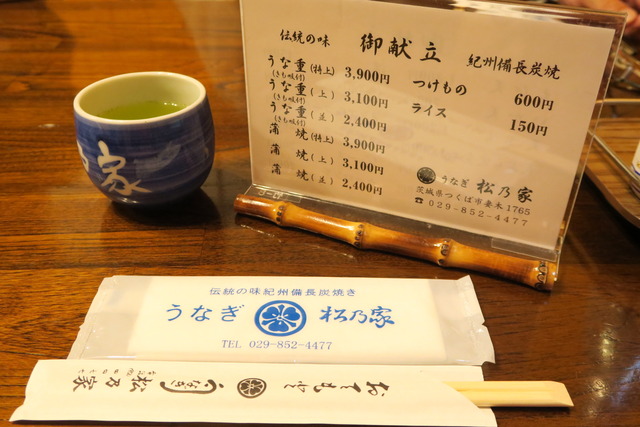 家
伝統の味 御献立 紀州備長炭焼
うな重(特上) 3,900円
(きも吸付)
うな重(上) 3,100円
(きも吸付)
うな重(並) 2,400円
(きも吸付)
蒲焼(特上) 3,900円
蒲焼(上) 3,100円
蒲焼(並) 2,400円
つけもの 600円
ライス 150円
うなぎ 松乃家
茨城県つくば市妻木1765
☎029-852-4477
伝統の味紀州備長炭焼き
うなぎ 松乃家
TEL 029-852-4477
おてもと
うなぎ
松乃家